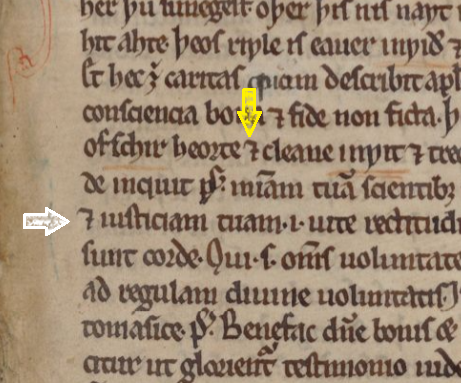 her þu unegest oþer þis nis nawt
hit ahte. þeos riwle is eauer inwið ⁊
Et hec ÷ caritas quam describit apl
consciencia bona ⁊ fide non ficta. þ
of schir heorte ⁊ cleane inwit ⁊ treo
de inquit ps̄. miam tuā scientibꝫ
⁊ iusticiam tuam .i. uite rectitudi
sunt corde. Qui .s. om̄s uoluntate
ad regulam diuine uoluntatis. I
tomasice. ps̄. Benefac dn̄e bonis ⁊
citur ut glorient᷑ testimonio uide